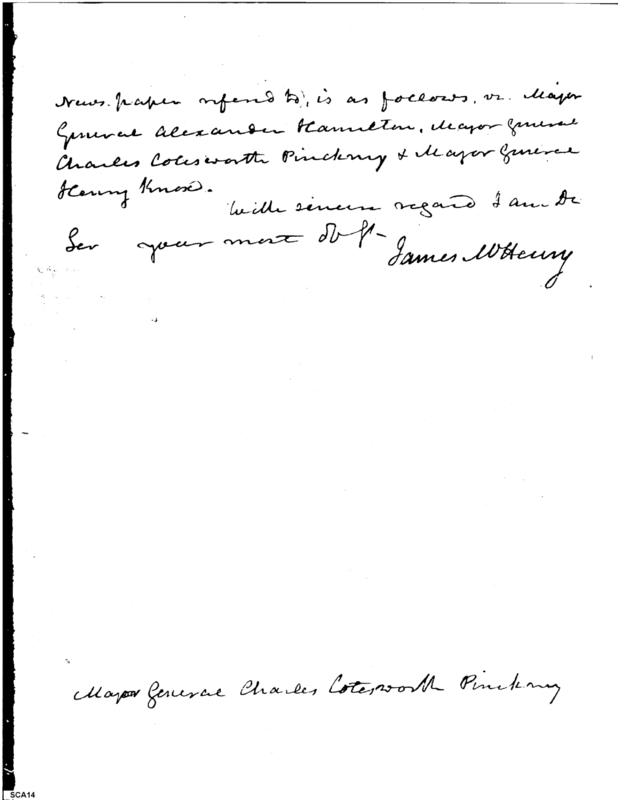 News-paper referred to, is as follows. viz. Major
General Alexander Hamilton, Major General
Charles Cotesworth Pinckney & Major General
Henry Knox.
With sincere regard I am De
Ser your most Obt
James McHenry
Major General Charles Cotesworth Pinckney
SCA14